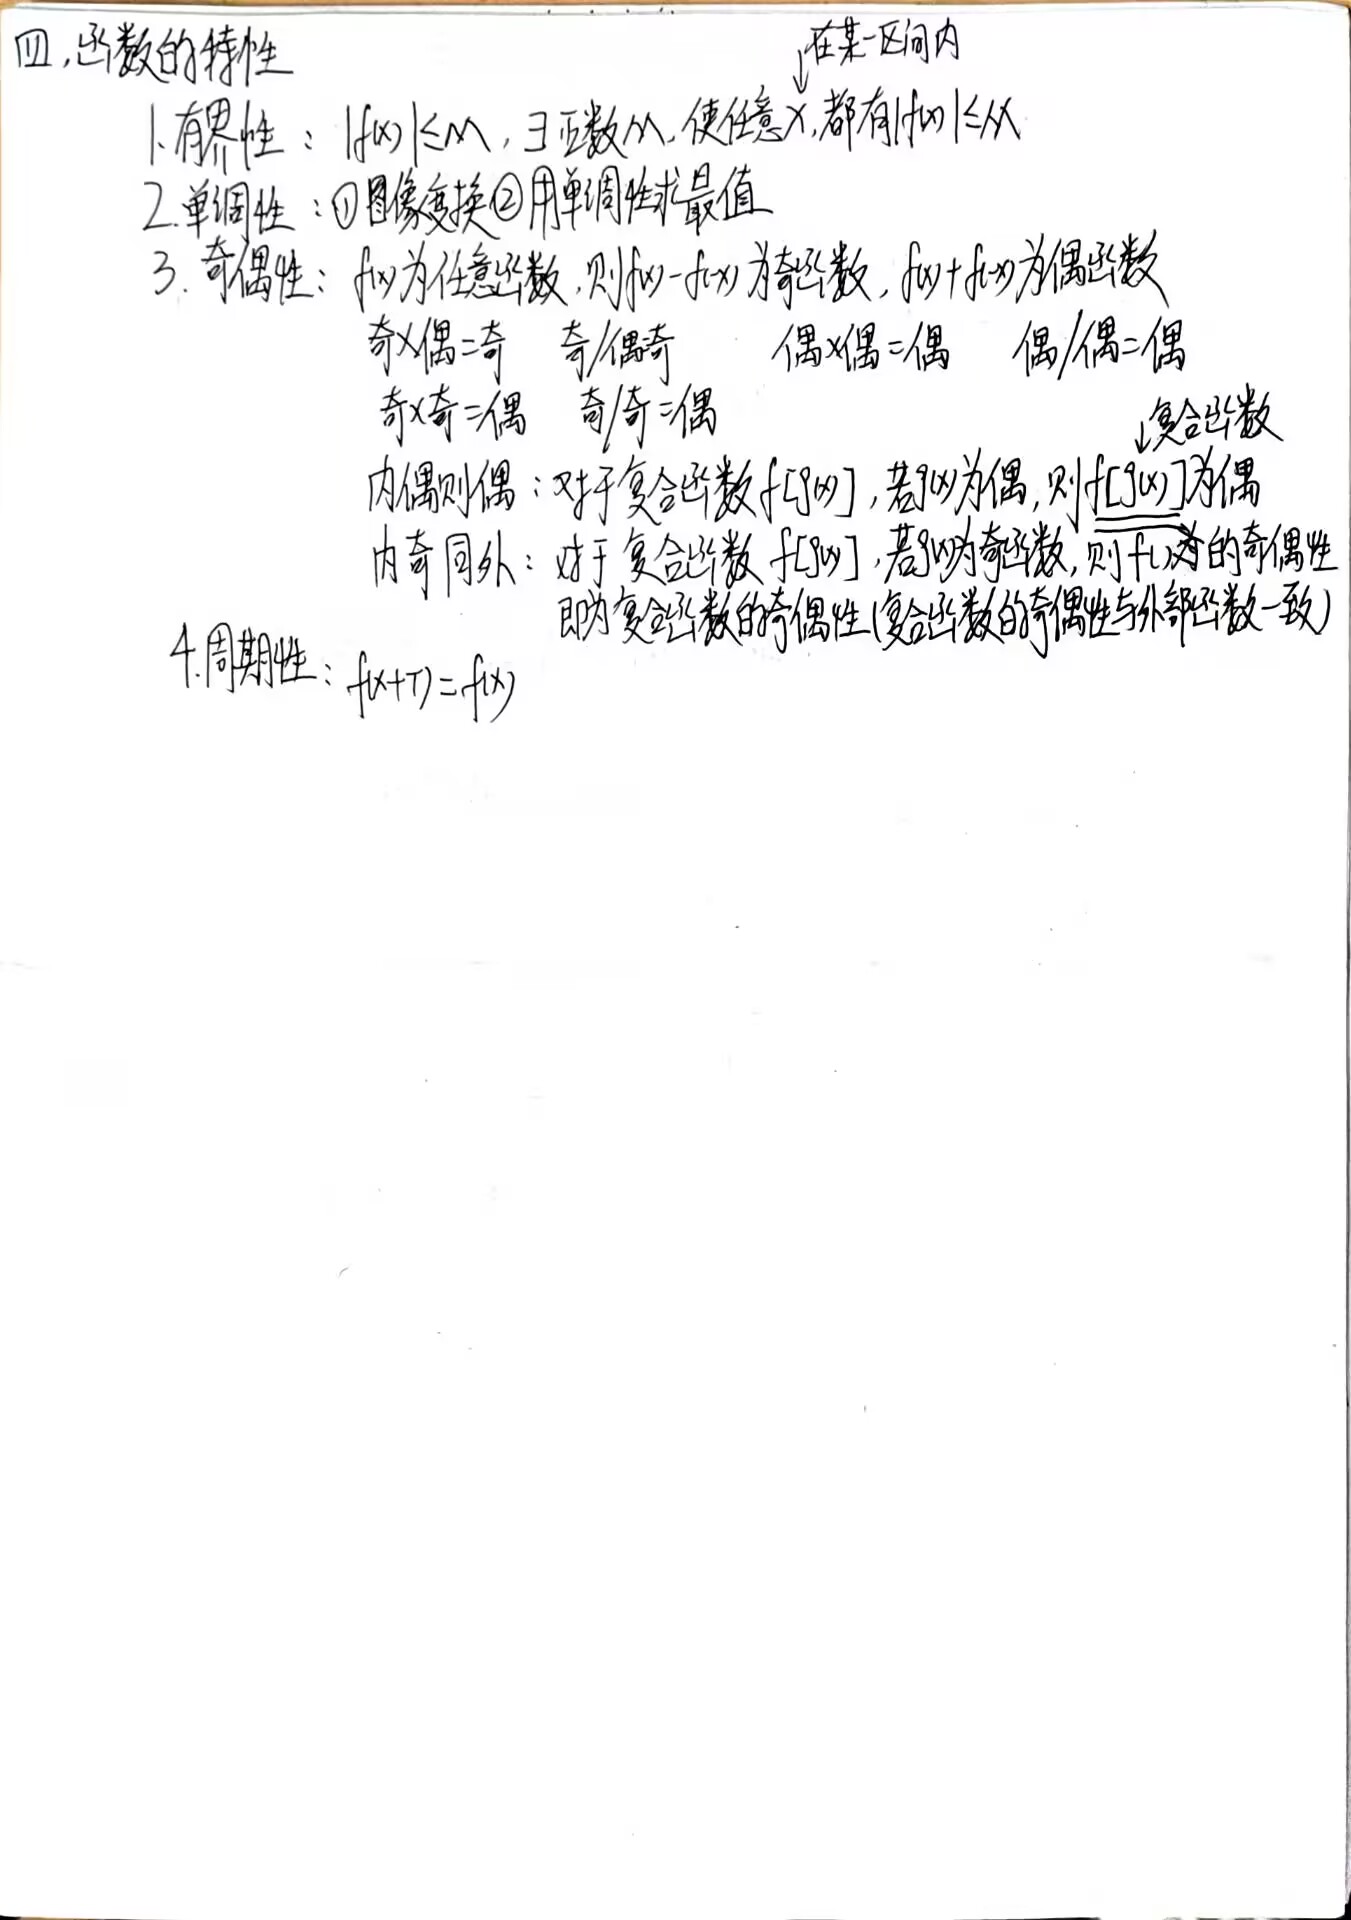 四、函数的特性
↓在某一区间内
1.有界性：|f(x)|≤M，∃正数M，使任意x，都有|f(x)|≤M
2.单调性：①图像变换②用单调性求最值
3.奇偶性：f(x)为任意函数，则f(x)-f(-x)为奇函数，f(x)+f(-x)为偶函数
奇×偶=奇 奇/偶=奇 偶×偶=偶 偶/偶=偶
奇×奇=偶 奇/奇=偶
↓复合函数
内偶则偶：对于复合函数f[g(x)]，若g(x)为偶，则f[g(x)]为偶
内奇同外：对于复合函数f[g(x)]，若g(x)为奇函数，则f( )的奇偶性
即为复合函数的奇偶性(复合函数的奇偶性与外部函数一致)
4.周期性：f(x+T)=f(x)